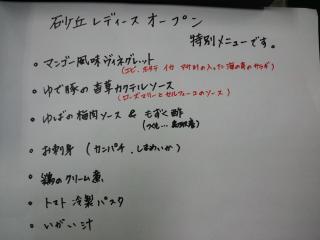 砂丘 レディース オープン
特別メニューです。
・マンゴー風味 ヴィネグレット
(エビ、ホタテ イカ の入った海の幸のサラダ)
・ゆで豚の香草カクテルソース
(ローズマリーとセルフィーユのソース)
・ゆばの梅肉ソース & もずく酢
・お刺身 (カンパチ、しまめいか)
・鶏のクリーム煮
・トマト冷製パスタ
・いがい汁